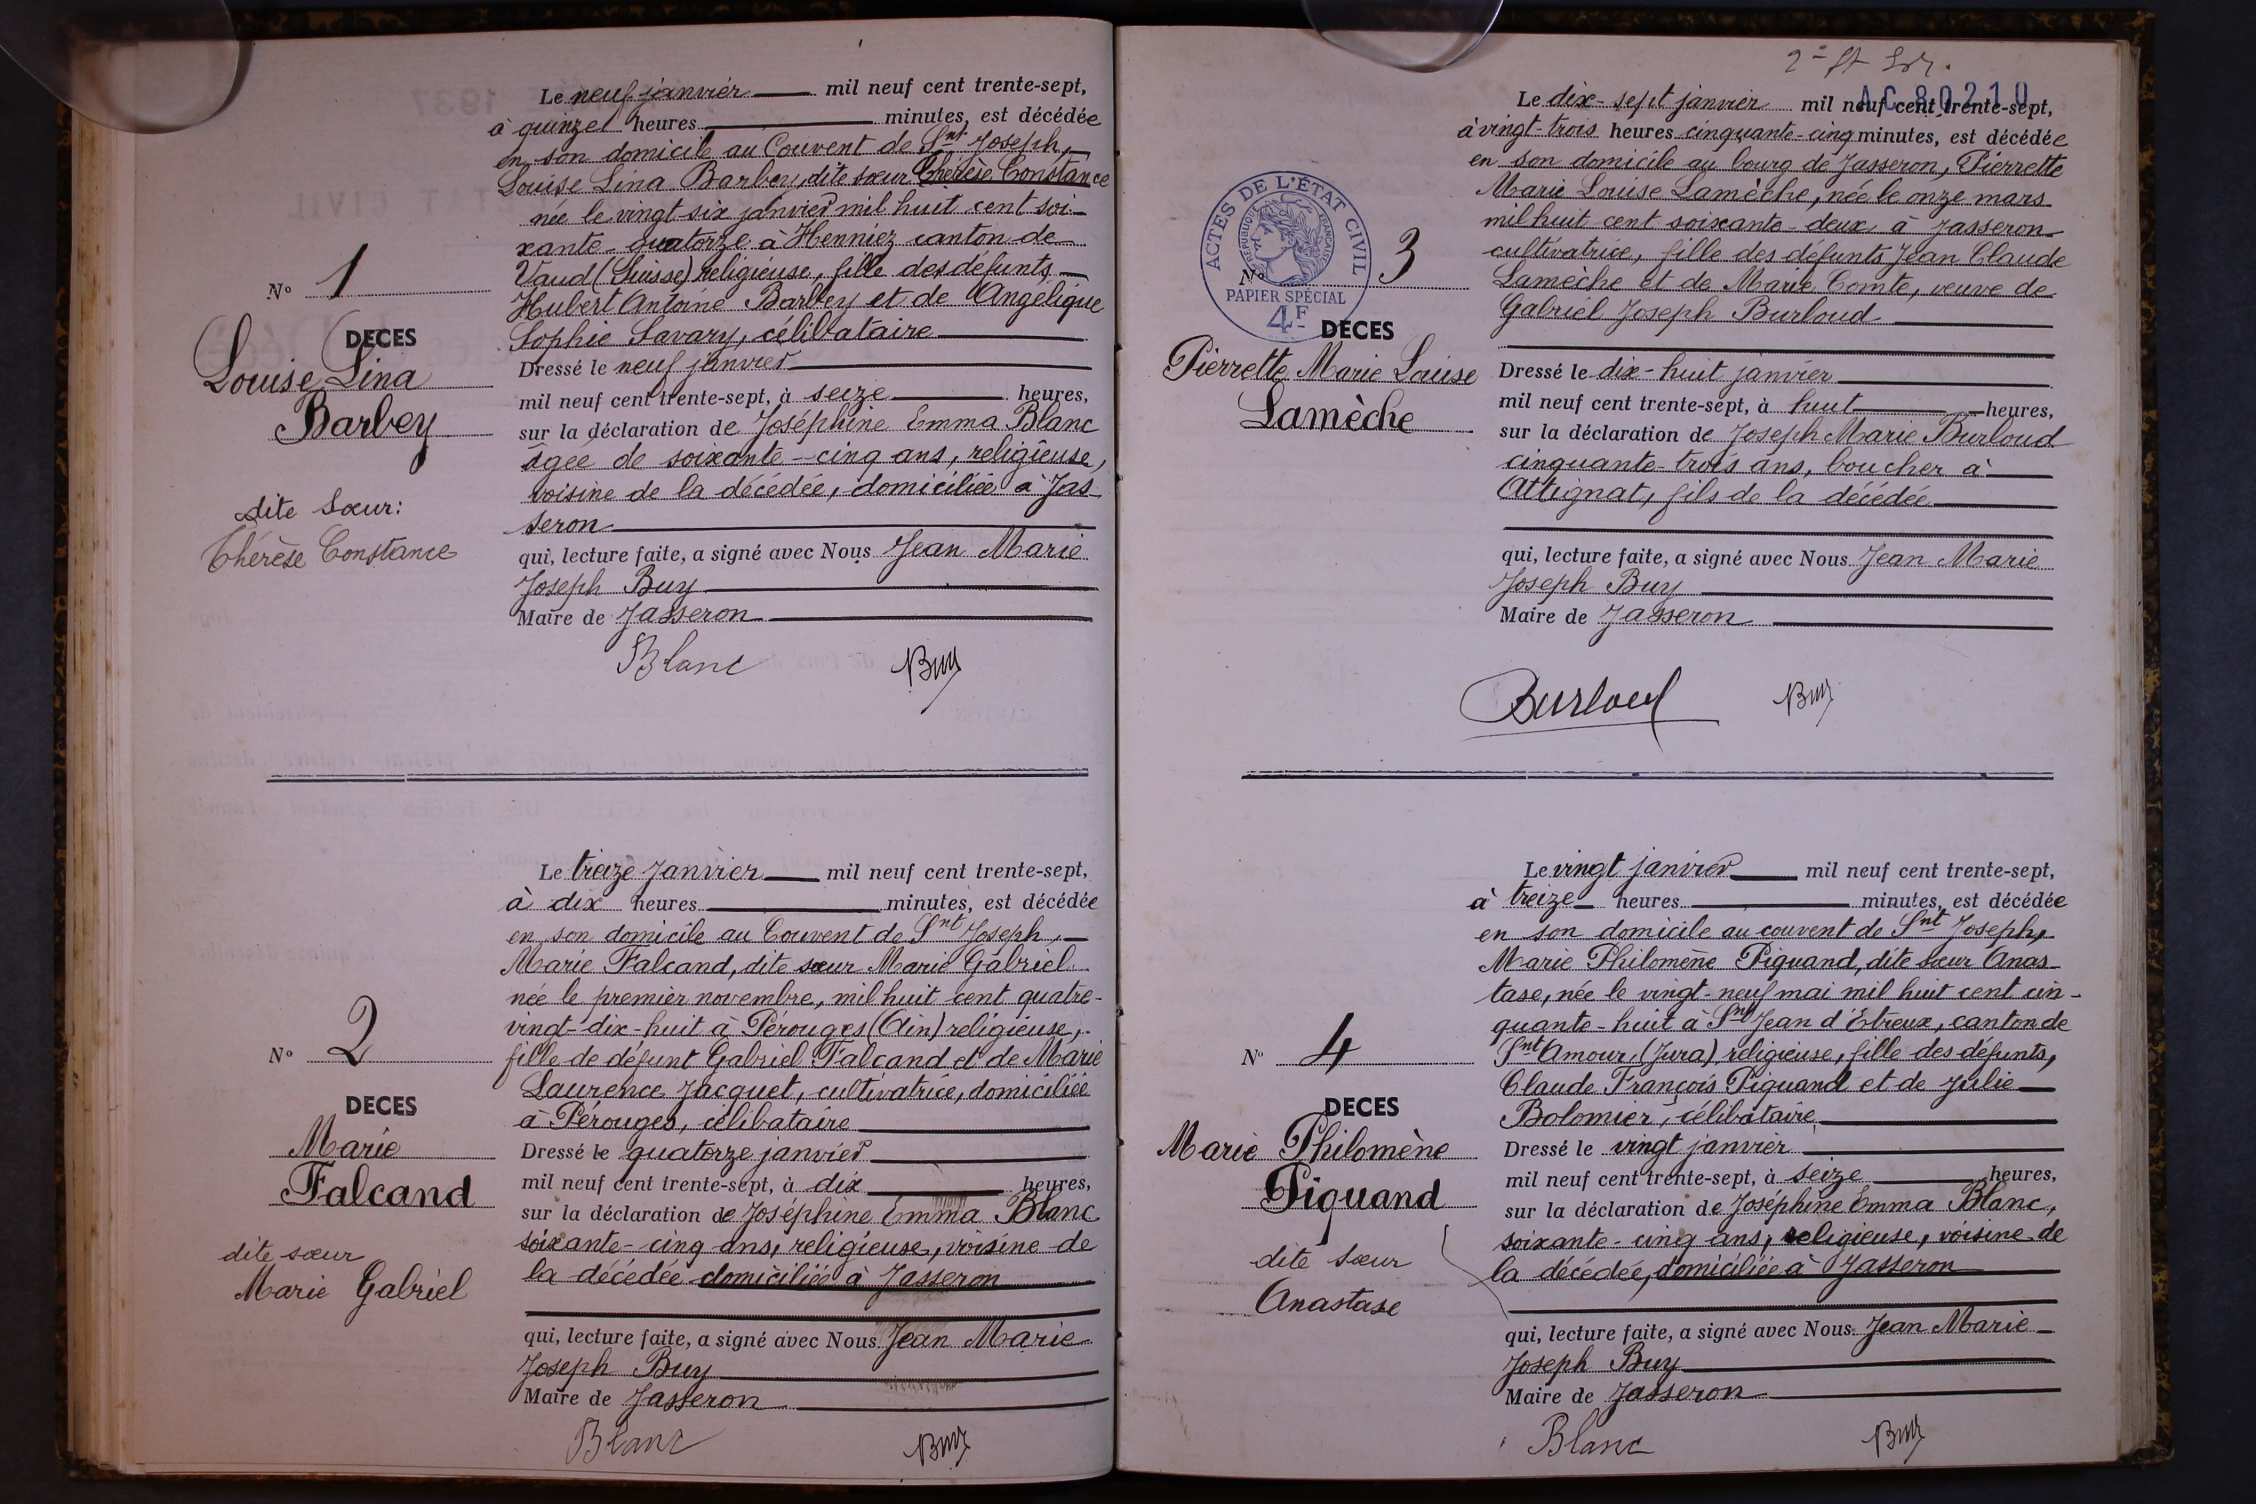 Le neuf janvier mil neuf cent trente-sept,
à quinze heures minutes, est décédée
en son domicile au Couvent de Snt Joseph,
Louise Lina Barbey, dite sœur Thérèse Constance
née le vingt-six janvier mil huit cent soi-
xante-quatorze à Henniez canton de
Vaud (Suisse) religieuse, fille des défunts
Hubert Antoine Barbey et de Angelique
Sophie Savary, célibataire
Dressé le neuf janvier
mil neuf cent trente-sept, à seize heures,
sur la déclaration de Joséphine Emma Blanc
âgée de soixante-cinq ans, religieuse,
voisine de la décédée, domiciliée à Jas
seron
qui, lecture faite, a signé avec Nous Jean Marie
Joseph Buy
Maire de Jasseron
Blanc Buy
N° 1
DECES
Louise Lina
Barbey
dite Sœur:
Thérèse Constance
Le treize janvier mil neuf cent trente-sept,
à dix heures minutes, est décédée
en son domicile au Couvent de Snt Joseph,
Marie Falcand, dite sœur Marie Gabriel
née le premier novembre, mil huit cent quatre-
vingt-dix-huit à Pérouges (Ain) religieuse,
fille de défunt Gabriel Falcand et de Marie
Laurence Jacquet, cultivatrice, domiciliée
à Pérouges, célibataire
Dressé le quatorze janvier
mil neuf cent trente-sept, à dix heures,
sur la déclaration de Joséphine Emma Blanc
soixante-cinq ans, religieuse, voisine de
la décédée domiciliée à Jasseron
qui, lecture faite, a signé avec Nous Jean Marie
Joseph Buy
Maire de Jasseron
Blanc Buy
N° 2
DECES
Marie
Falcand
dite sœur
Marie Gabriel
AC 80210
Le dix-sept janvier mil neuf cent trente-sept,
à vingt-trois heures cinquante-cinq minutes, est décédée
en son domicile au bourg de Jasseron, Pierrette
Marie Louise Lamèche, née le onze mars
mil huit cent soixante-deux à Jasseron
cultivatrice, fille des défunts Jean Claude
Lamèche et de Marie Comte, veuve de
Gabriel Joseph Burloud
Dressé le dix-huit janvier
mil neuf cent trente-sept, à huit heures,
sur la déclaration de Joseph Marie Burloud
cinquante-trois ans, boucher à
Attignat, fils de la décédée
qui, lecture faite, a signé avec Nous Jean Marie
Joseph Buy
Maire de Jasseron
Burloud Buy
ACTES DE L'ÉTAT CIVIL
RÉPUBLIQUE FRANÇAISE
PAPIER SPÉCIAL
4F
N° 3
DECES
Pierrette Marie Louise
Lamèche
Le vingt janvier mil neuf cent trente-sept,
à treize heures minutes, est décédée
en son domicile au couvent de Snt Joseph,
Marie Philomène Piquand, dite sœur Anas-
tase, née le vingt-neuf mai mil huit cent cin-
quante-huit à Snt Jean d'Etreux, canton de
Snt Amour, (Jura), religieuse, fille des défunts,
Claude François Piquand et de Julie
Bolomier, célibataire
Dressé le vingt janvier
mil neuf cent trente-sept, à seize heures,
sur la déclaration de Joséphine Emma Blanc,
soixante-cinq ans, religieuse, voisine de
la décédée, domiciliée à Jasseron
qui, lecture faite, a signé avec Nous Jean Marie
Joseph Buy
Maire de Jasseron
Blanc Buy
N° 4
DECES
Marie Philomène
Piquand
dite sœur
Anastase